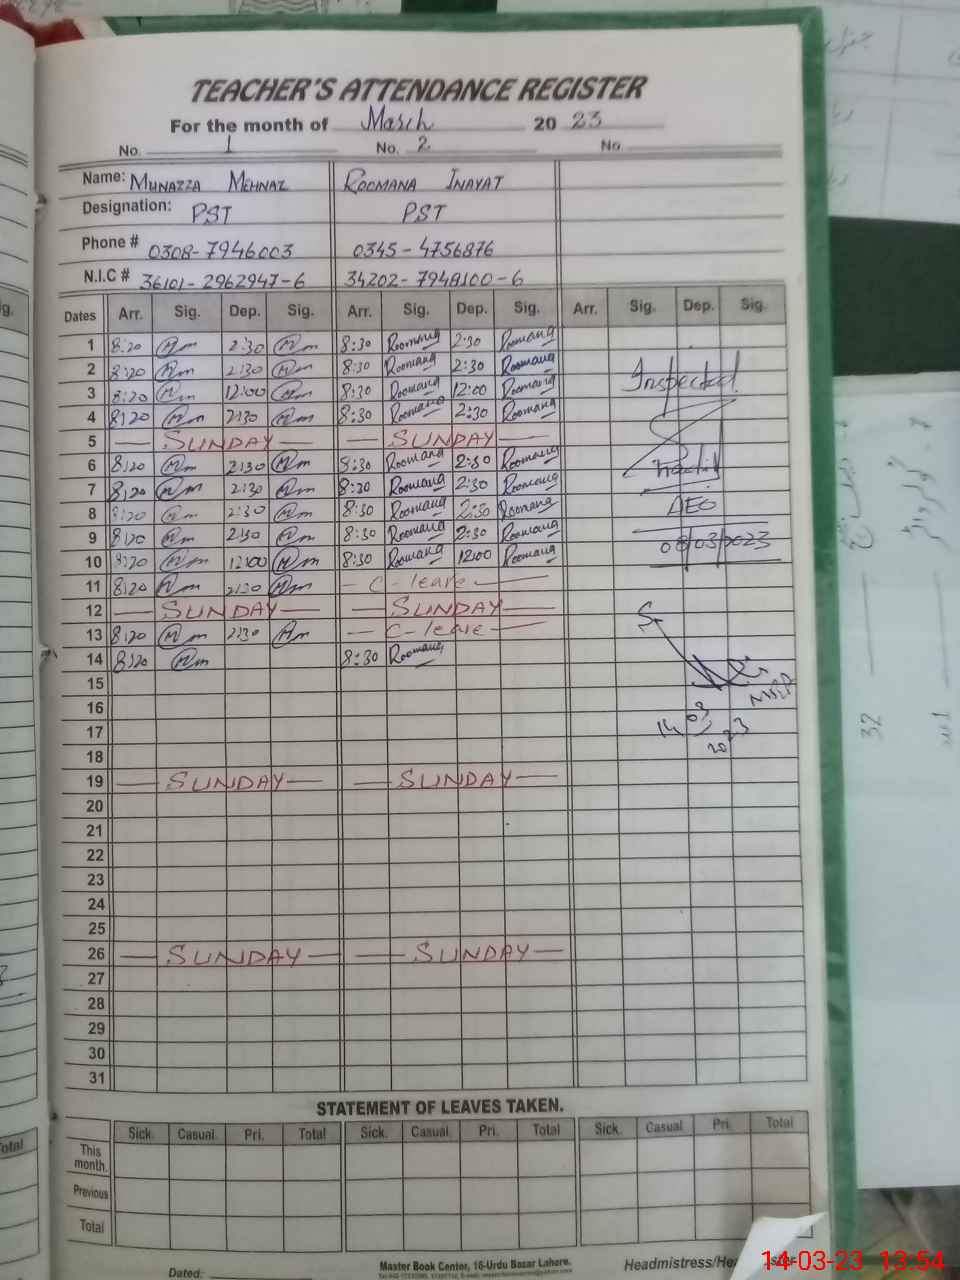 TEACHER'S ATTENDANCE REGISTER
For the month of March 2023
No. 1 No. 2 No.
Name: MUNAZZA MEHNAZ ROOMANA INAYAT
Designation: PST PST
Phone # 0308-7946003 0345-4756876
N.I.C # 36101-2962947-6 34202-7948100-6
Dates Arr. Sig. Dep. Sig. Arr. Sig. Dep. Sig. Arr. Sig. Dep. Sig.
1 8:20 Mm 2:30 Mm 8:30 Roomana 2:30 Roomana
2 8:20 Mm 2:30 Mm 8:30 Roomana 2:30 Roomana
3 8:20 Mm 12:00 Mm 8:30 Roomana 12:00 Roomana
Inspected
4 8:20 Mm 2:30 Mm 8:30 Roomana 2:30 Roomana
5 SUNDAY SUNDAY
6 8:20 Mm 2:30 Mm 8:30 Roomana 2:30 Roomana
7 8:20 Mm 2:30 Mm 8:30 Roomana 2:30 Roomana
8 8:20 Mm 2:30 Mm 8:30 Roomana 2:30 Roomana
AEO
9 8:20 Mm 2:30 Mm 8:30 Roomana 2:30 Roomana
08/03/2023
10 8:20 Mm 12:00 Mm 8:30 Roomana 12:00 Roomana
11 8:20 Mm 2:30 Mm C-leave
12 SUNDAY SUNDAY
13 8:20 Mm 2:30 Mm C-leave
14 8:20 Mm 8:30 Roomana
15
16
17 14 03 2023
18
19 SUNDAY SUNDAY
20
21
22
23
24
25
26 SUNDAY SUNDAY
27
28
29
30
31
STATEMENT OF LEAVES TAKEN.
Sick. Casual. Pri. Total Sick. Casual. Pri. Total Sick. Casual Pri. Total
This month.
Previous
Total
Dated:
Master Book Center, 16-Urdu Bazar Lahore.
Headmistress/
14-03-23 13:54